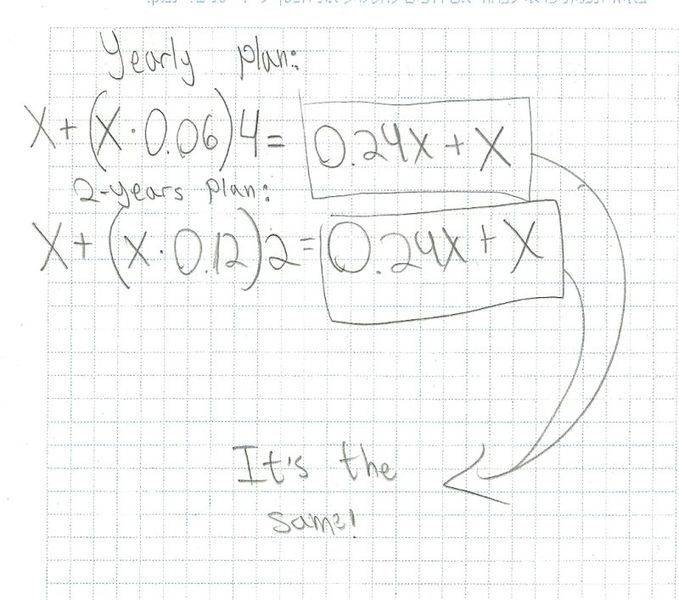 Yearly plan:
X + (X · 0.06)4 = 0.24X + X
2-years plan:
X + (X · 0.12)2 = 0.24X + X
It's the
same!